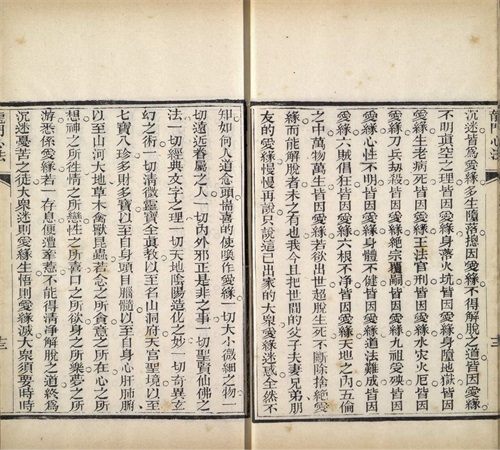 沉迷皆爲愛緣多生墮落總因愛緣不得解脫之道皆因
不明眞空之理皆因愛緣身落火坑皆因愛緣身墮地獄皆因
愛緣生老病死皆因愛緣王法官刑皆因愛緣水灾火厄皆因
愛緣刀兵劫殺皆因愛緣絕宗覆嗣皆因愛緣九祖受殃皆因
愛緣心性不明皆因愛緣身體不健皆因愛緣道法難成皆因
愛緣六賊倡狂皆因愛緣六根不净皆因愛緣天地之內五倫
之中萬物萬生皆因愛緣若欲出世超脫生死不斷除捨絕愛
緣而能解脫者未之有也我今且把世間的父子夫妻兄弟朋
友的愛緣慢慢再說只說這已出家的大衆愛緣迷惑全然不
十三
龍門心法
知如何人道念頭揣喜的使喚作愛緣一切大小微細之物一
切遠近眷屬之人一切內外邪正是非之事一切聖賢仙佛之
法一切經典文字之理一切天地陰陽造化之妙一切奇異玄
幻之術一切淸微靈寶全眞敎以至名山洞府天宮聖境以至
七寶八珍多財多寶以至自身頭目腦髓以至自身心肝肺腑
以至山河大地草木禽獸昆蟲若念之所貪意之所在心之所
想神之所往情之所戀性之所喜口之所欲身之所樂夢之所
游悉係愛緣若一存息便遭牽惹不能得淸淨解脫之道終爲
沉迷憂苦之徒大衆迷則愛緣生悟則愛緣滅大衆須要時時
十三